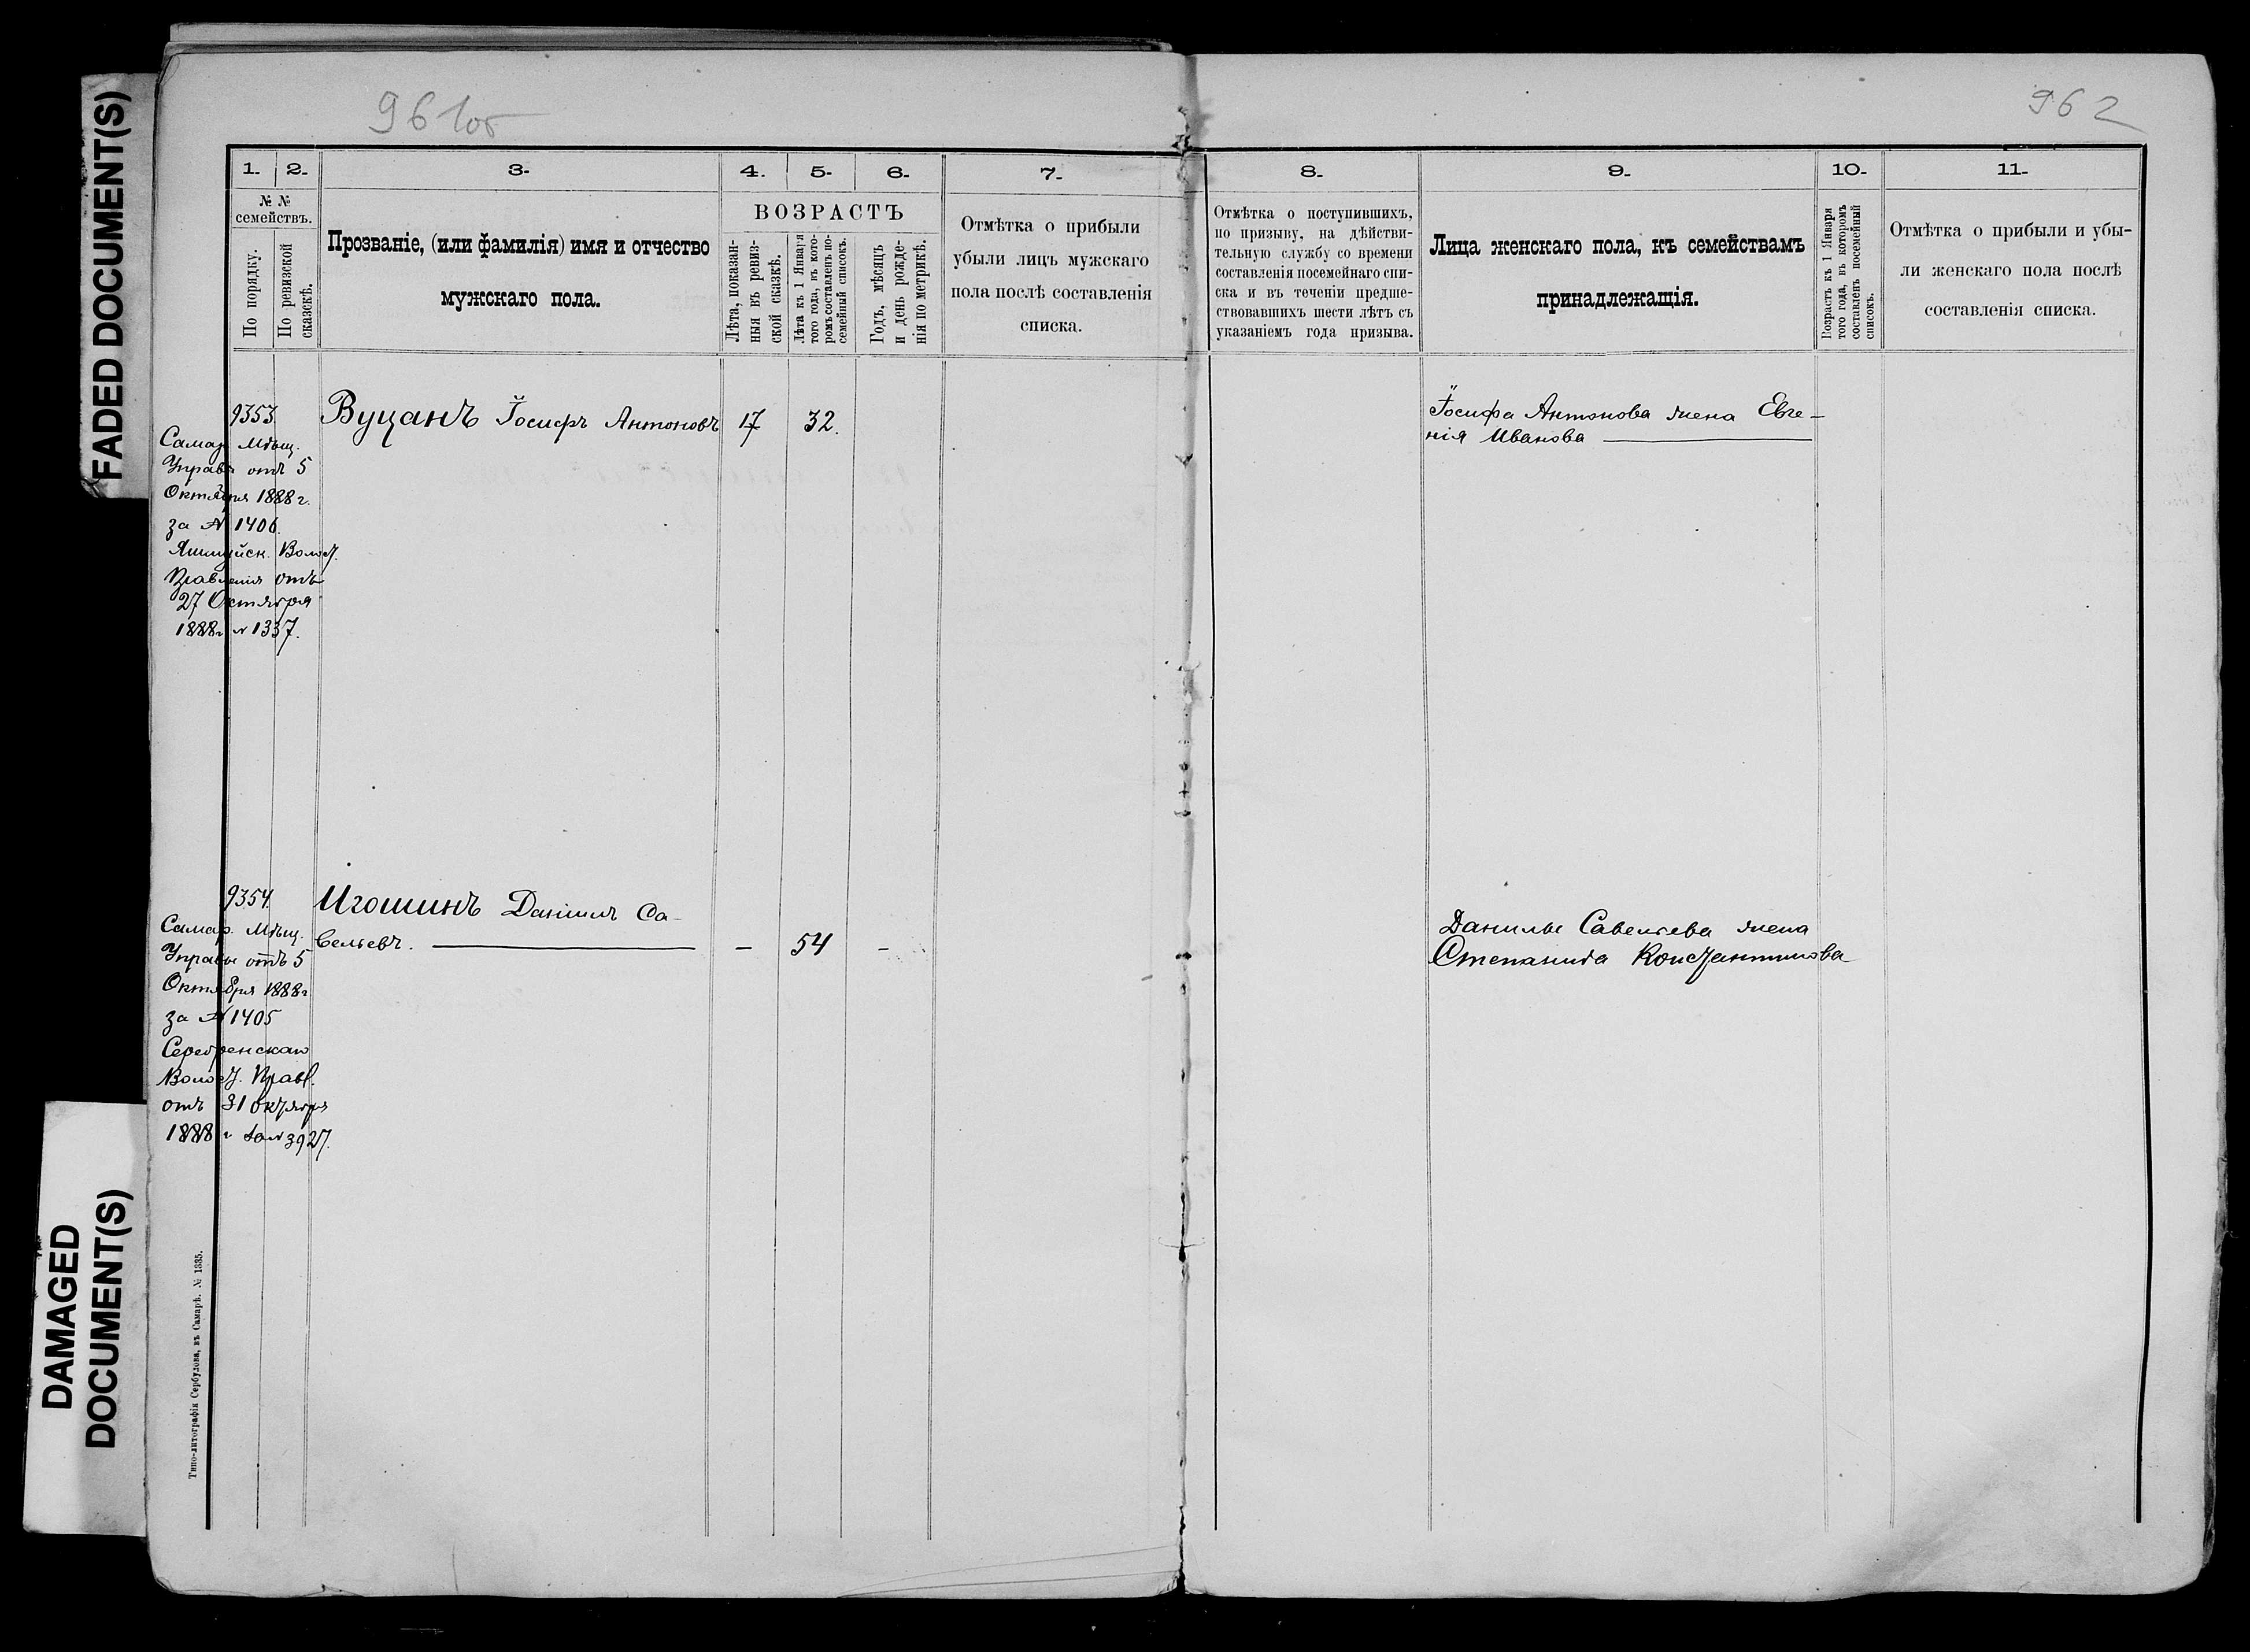 FADED DOCUMENT(S)
DAMAGED
DOCUMENT(S)
961об
962
1.
2.
3.
4.
5.
6.
7.
8.
9.
10.
11.
№ №
семействъ.
По порядку.
По ревизской
сказкѣ.
Прозваніе, (или фамилія) имя и отчество
мужскаго пола.
ВОЗРАСТЪ
Лѣта, показан-
ныя въ ревиз-
ской сказкѣ.
Лѣта къ 1 Января
того года, въ кото-
ромъ составленъ по-
семейный списокъ.
Годъ, мѣсяцъ
и день рожде-
нія по метрикѣ.
Отмѣтка о прибыли
убыли лицъ мужскаго
пола послѣ составленія
списка.
Отмѣтка о поступившихъ,
по призыву, на дѣйстви-
тельную службу со времени
составленія посемейнаго спи-
ска и въ теченіи предше-
ствовавшихъ шести лѣтъ съ
указаніемъ года призыва.
Лица женскаго пола, къ семействамъ
принадлежащія.
Возрастъ къ 1 Января
того года, въ которомъ
составленъ посемейный
списокъ.
Отмѣтка о прибыли и убы-
ли женскаго пола послѣ
составленія списка.
9353
Самар. Мѣщ.
Управы отъ 5
Октября 1888 г.
за № 1406.
Волост.
Правленія отъ
27 Октября
1888 г № 1337.
Вуцанъ Іосифъ Антоновъ 17 32.
Іосифа Антонова жена Евге-
нія Иванова
9354
Самар. Мѣщ.
Управы отъ 5
Октября 1888 г
за № 1405
Серебренскаго
Волост. Правл.
отъ 31 октября
1888 г за № 3927.
Игошинъ Даніилъ Са-
вельевъ. — 54 —
Данилы Савельева жена
Степанида Константинова
Типо-литографія Сербулова, въ Самарѣ. № 1335.